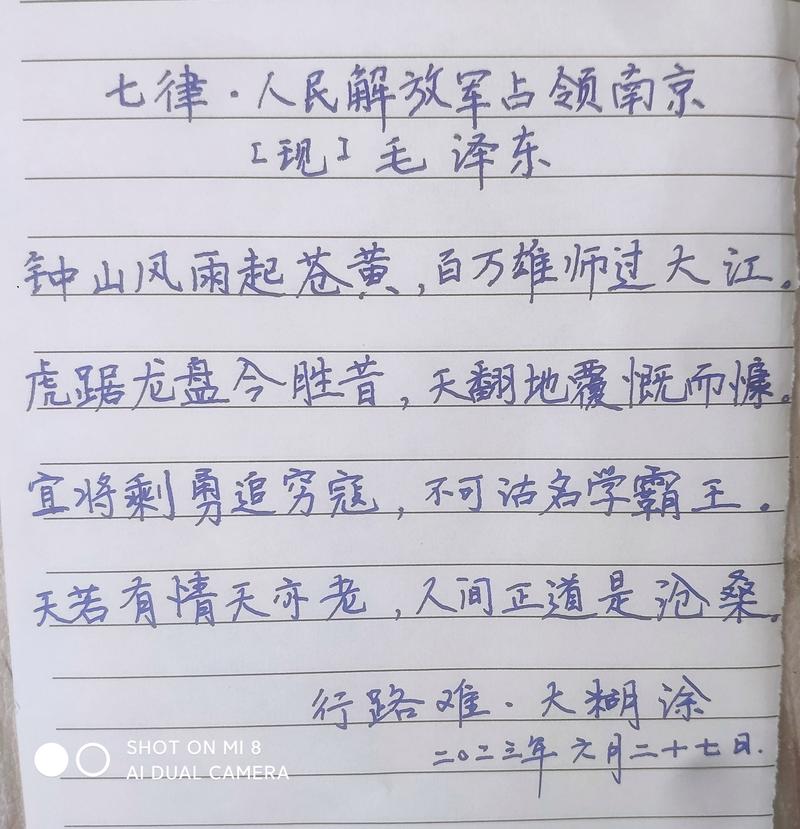 七律·人民解放军占领南京
[现]毛泽东
钟山风雨起苍黄,百万雄师过大江。
虎踞龙盘今胜昔,天翻地覆慨而慷。
宜将剩勇追穷寇,不可沽名学霸王。
天若有情天亦老,人间正道是沧桑。
行路难·大糊涂
二〇二三年六月二十七日.
SHOT ON MI 8
AI DUAL CAMERA